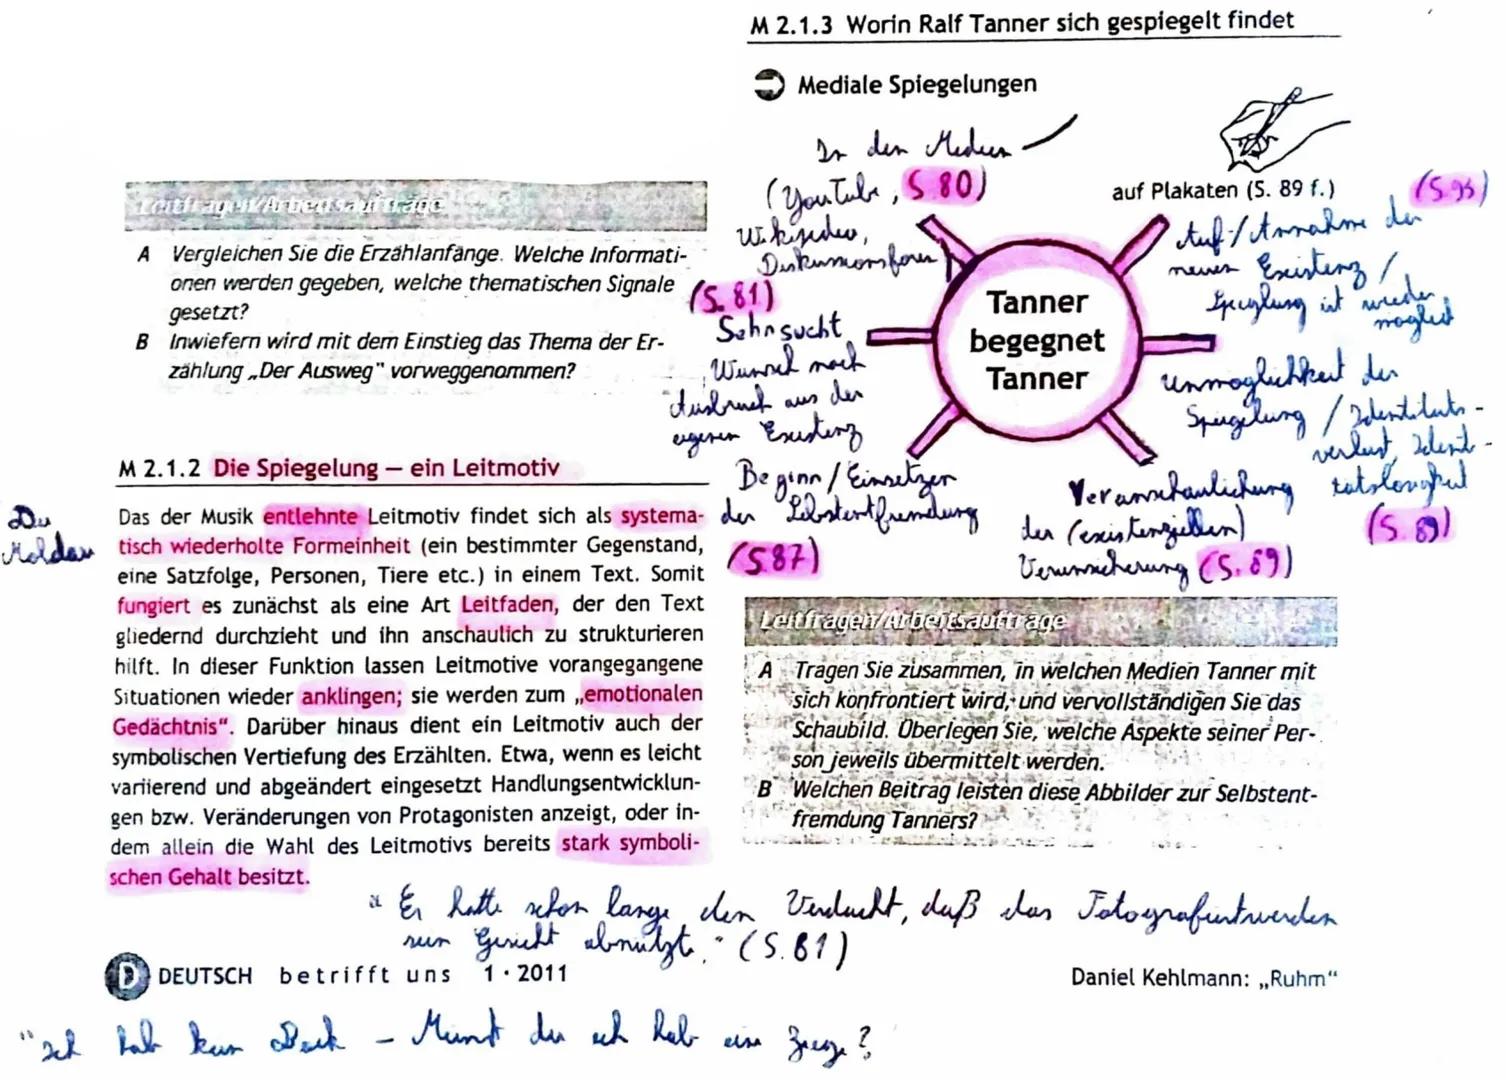 Leitfragen/Arbeitsaufträge
A Vergleichen Sie die Erzählanfänge. Welche Informati-
onen werden gegeben, welche thematischen Signale
gesetzt?
B Inwiefern wird mit dem Einstieg das Thema der Er-
zählung „Der Ausweg" vorweggenommen?
M 2.1.2 Die Spiegelung – ein Leitmotiv
Die
Moldau
Das der Musik entlehnte Leitmotiv findet sich als systema-
tisch wiederholte Formeinheit (ein bestimmter Gegenstand,
eine Satzfolge, Personen, Tiere etc.) in einem Text. Somit
fungiert es zunächst als eine Art Leitfaden, der den Text
gliedernd durchzieht und ihn anschaulich zu strukturieren
hilft. In dieser Funktion lassen Leitmotive vorangegangene
Situationen wieder anklingen; sie werden zum „emotionalen
Gedächtnis". Darüber hinaus dient ein Leitmotiv auch der
symbolischen Vertiefung des Erzählten. Etwa, wenn es leicht
variierend und abgeändert eingesetzt Handlungsentwicklun-
gen bzw. Veränderungen von Protagonisten anzeigt, oder in-
dem allein die Wahl des Leitmotivs bereits stark symboli-
schen Gehalt besitzt.
M 2.1.3 Worin Ralf Tanner sich gespiegelt findet
Mediale Spiegelungen
In den Medien
(YouTube, S 80)
Wikipedia,
Diskussionsforen
auf Plakaten (S. 89 f.)
(S.95)
Auf-/Annahme der
neuen Existenz /
Spieglung ist wieder
möglich
(S. 81)
Sehnsucht
Wunsch nach
Ausbruch aus der
eigenen Existenz
Tanner
begegnet
Tanner
Unmöglichkeit der
Spiegelung / Identitäts-
verlust, Identi-
tätslosigkeit
(S. 89)
Beginn / Einsetzen
der Selbstentfremdung
(S.87)
Veranschaulichung
der (existenziellen)
Verunsicherung (S. 89)
Leitfragen/Arbeitsaufträge
A Tragen Sie zusammen, in welchen Medien Tanner mit
sich konfrontiert wird, und vervollständigen Sie das
Schaubild. Überlegen Sie, welche Aspekte seiner Per-
son jeweils übermittelt werden.
B Welchen Beitrag leisten diese Abbilder zur Selbstent-
fremdung Tanners?
" Er hatte schon lange den Verdacht, daß das Fotografiertwerden
sein Gesicht abnützt." (S. 81)
D DEUTSCH betrifft uns 1·2011
Daniel Kehlmann: „Ruhm"
"Ich hab kein Bock – Meinst du ich hab eine